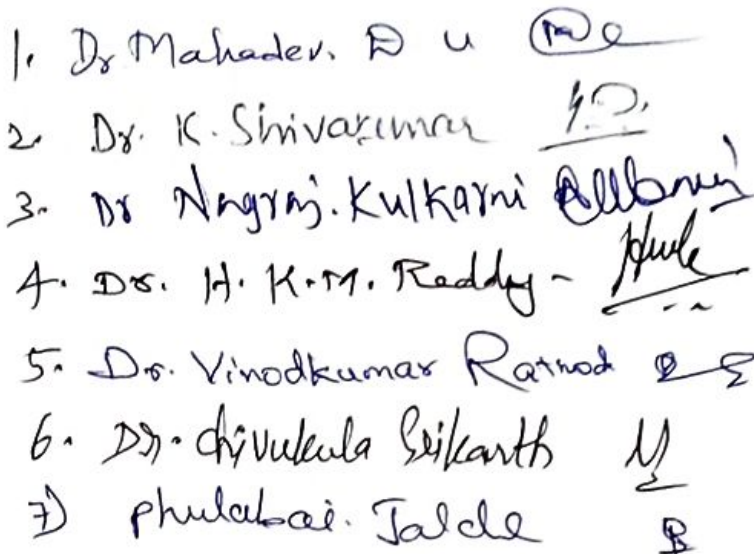 1. Dr Mahadev. D U
2. Dr. K. Shivakumar
3. Dr Nagraj. Kulkarni
4. Dr. H. K. M. Reddy -
5. Dr. Vinodkumar Rathod
6. Dr. Chivukula Srikanth
7) Phulabai. Jalde